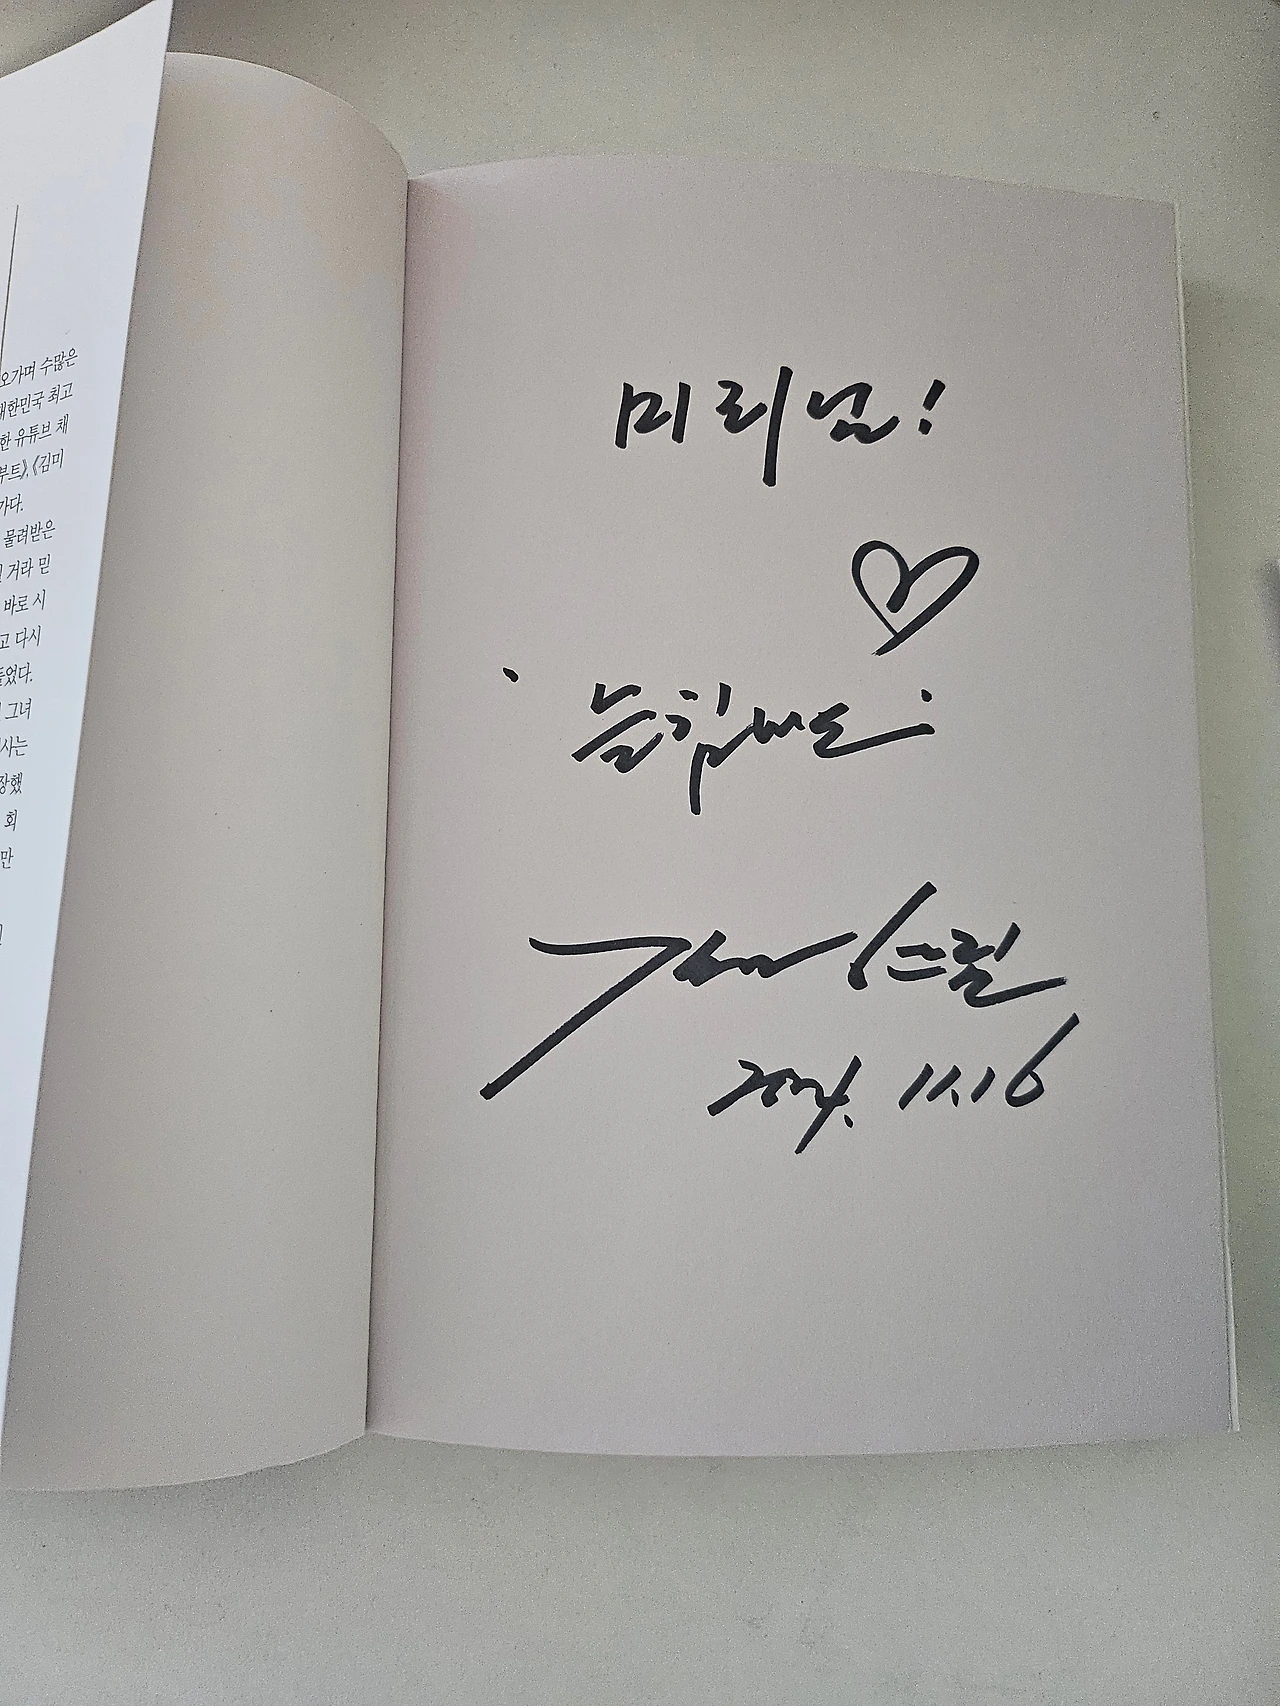 오가며 수많은
대한민국 최고
한 유튜브 채
부트》, 《김미
가다.
물려받은
거라 믿
바로 시
고 다시
들었다.
그녀
사는
장했
회
만
미리님!
늘 힘내요
드림
2024. 11.16